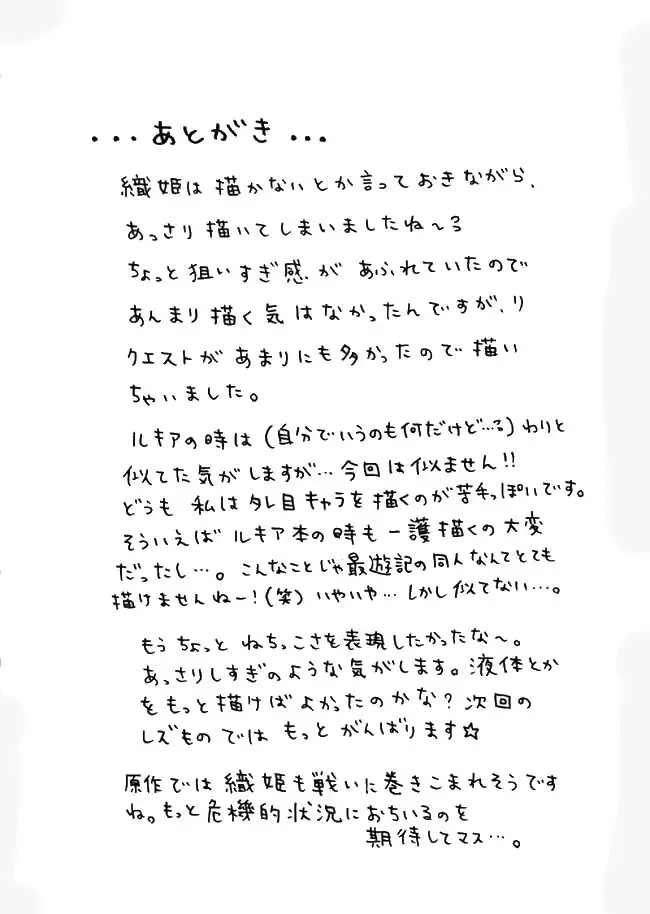 ...あとがき...
織姫は描かないとか言っておきながら、
あっさり描いてしまいましたね～る
ちょっと狙いすぎ感があふれていたので
あんまり描く気はなかったんですが、リ
クエストがあまりにも多かったので描い
ちゃいました。
ルキアの時は(自分でいうのも何だけど…る)わりと
似てた気がしますが…今回は似ません!!
どうも私はタレ目キャラを描くのが苦手っぽいです。
そういえばルキア本の時も一護描くの大変
だったし…。こんなことじゃ最遊記の同人なんてとても
描けませんねー!(笑)いやいや…しかし似てない…。
もうちょっとねちっこさを表現したかったな～。
あっさりしすぎのような気がします。液体とか
をもっと描けばよかったのかな?次回の
レズものではもっとがんばります☆
原作では織姫も戦いに巻きこまれそうです
ね。もっと危機的状況におちいるのを
期待してマス…。